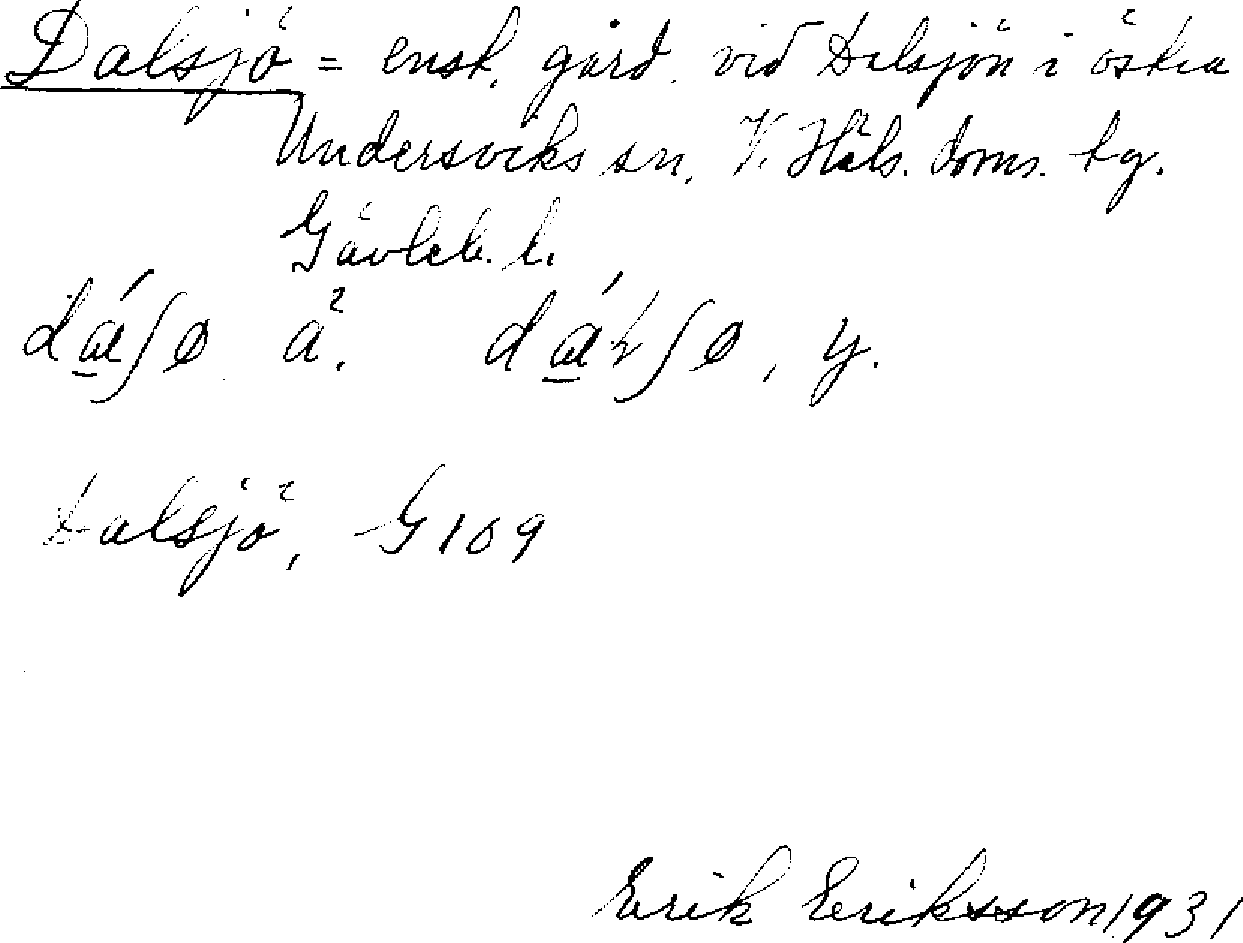 Dalsjö = ensk. gård. vid Dalsjön i östra
Undersviks sn, V. Häls. doms. tg.
Gävleb. l.
dáʃø ä. , y.
Dalsjö, G 109
Erik Eriksson 1931